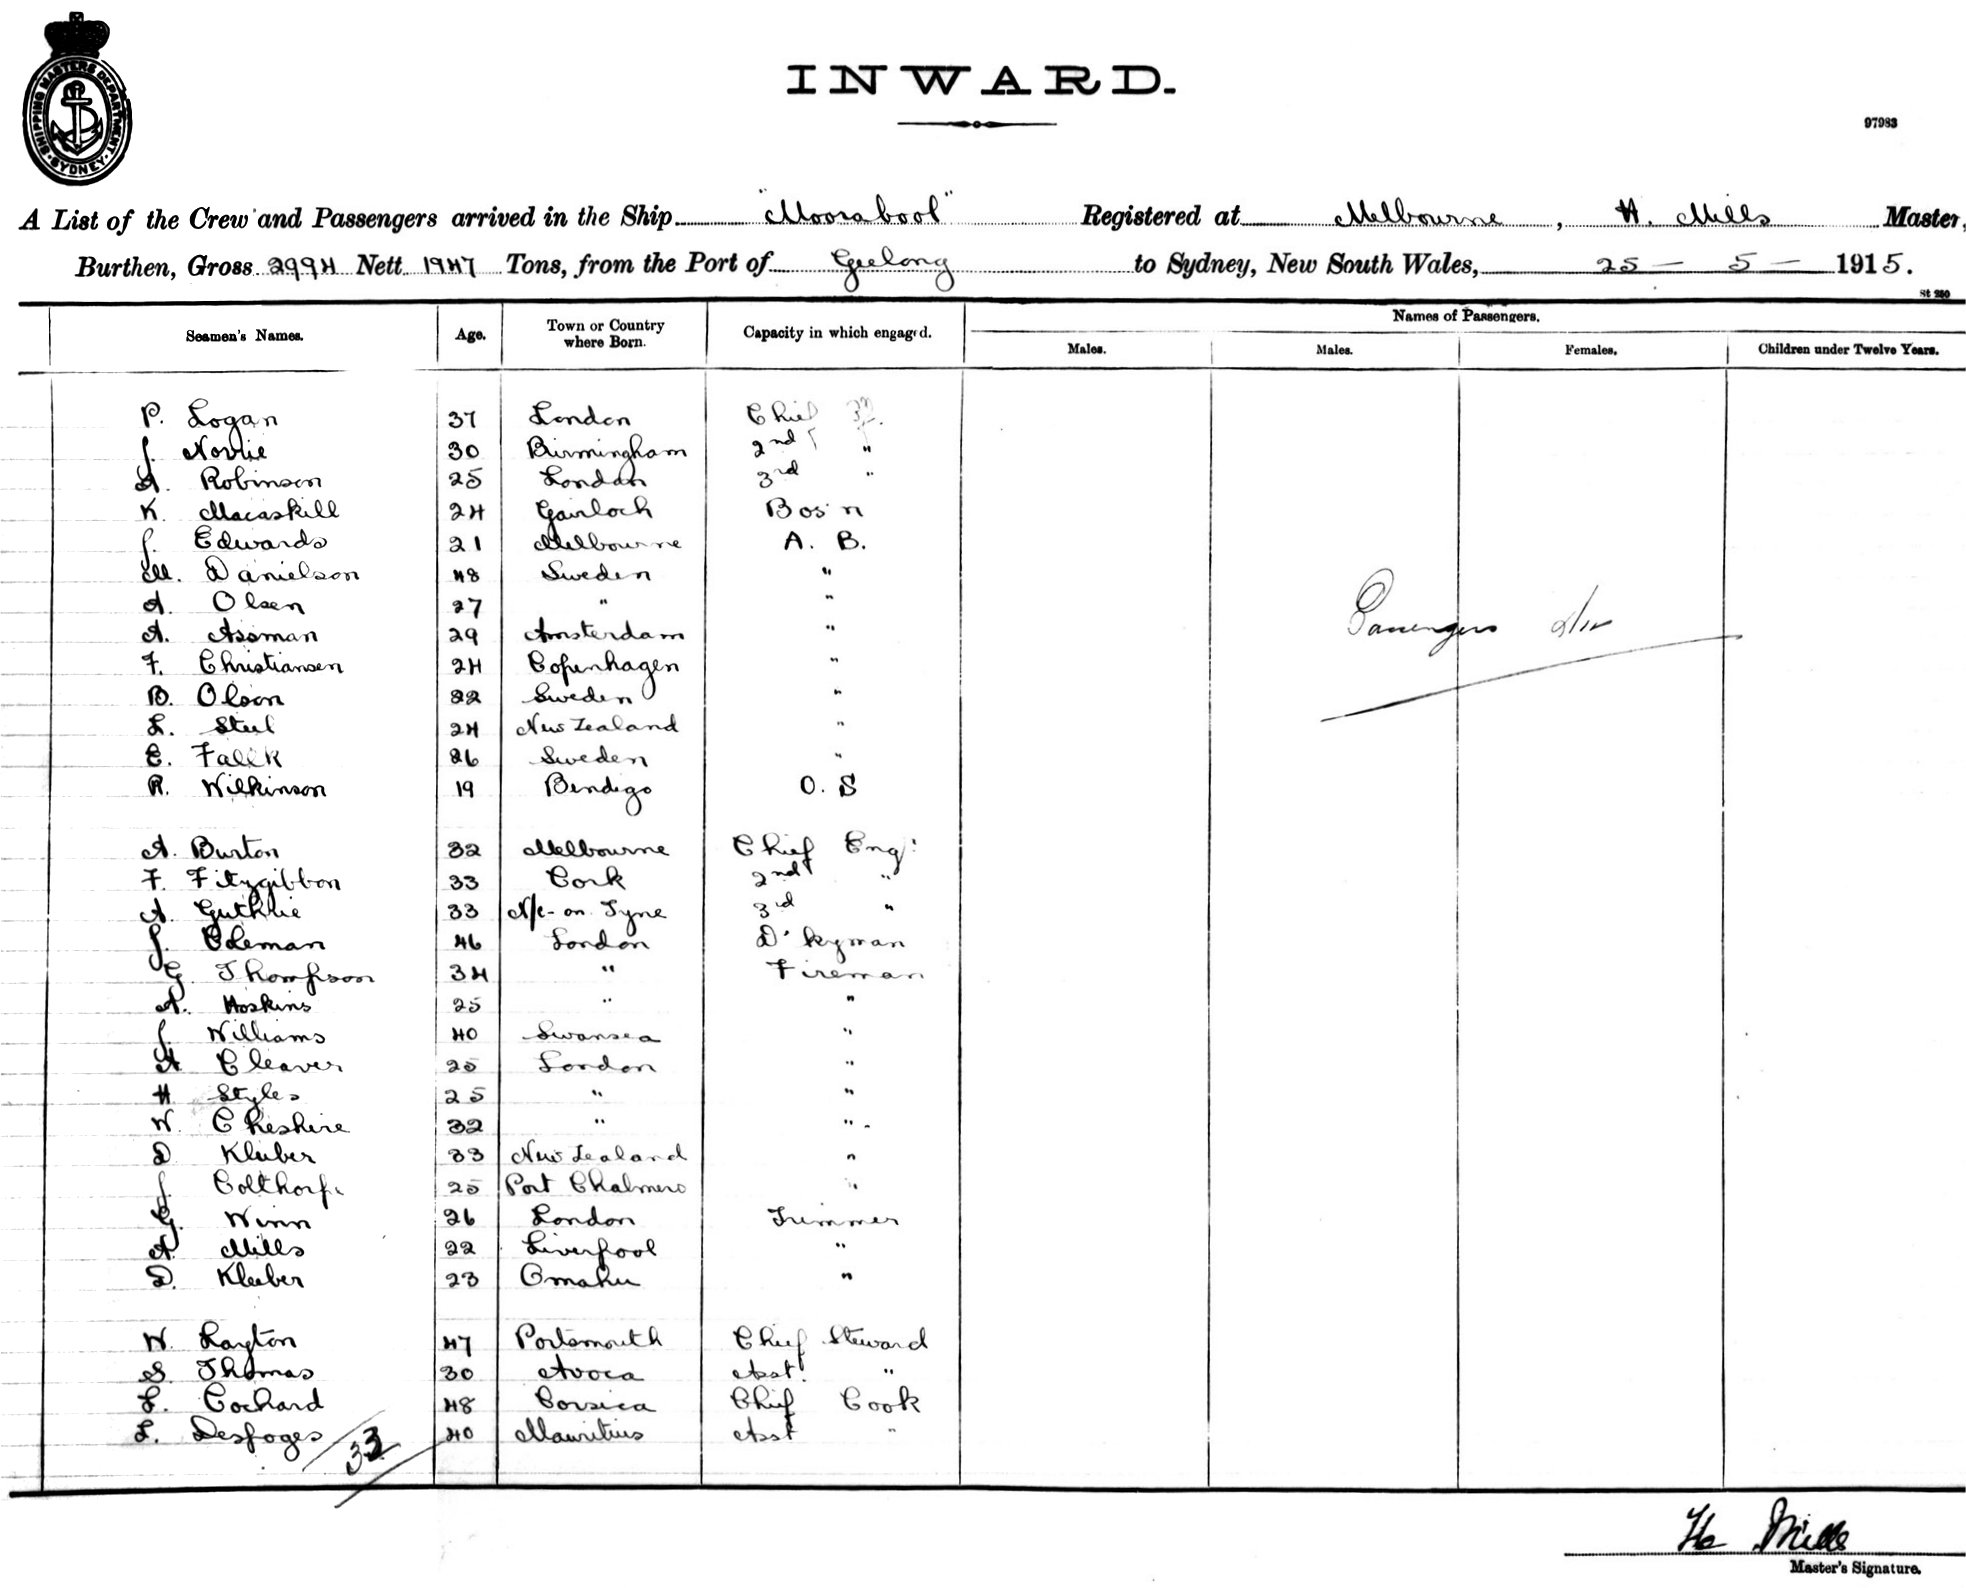 SHIPPING MASTERS DEPARTMENT
SYDNEY
INWARD.
97983
A List of the Crew and Passengers arrived in the Ship "Moorabool" Registered at Melbourne, H. Mills Master,
Burthen, Gross 2994 Nett 1947 Tons, from the Port of Geelong to Sydney, New South Wales, 25 - 5 - 1915.
St 250
Seamen's Names. Age. Town or Country where Born. Capacity in which engaged. Names of Passengers.
Males. Males. Females. Children under Twelve Years.
P. Logan 37 London Chief
J. Norrie 30 Birmingham 2nd "
A. Robinson 25 London 3rd "
K. Macaskill 24 Gairloch Bos'n
J. Edwards 21 Melbourne A. B.
M. Danielson 48 Sweden "
A. Olsen 27 " "
A. Assman 29 Amsterdam "
F. Christiansen 24 Copenhagen "
B. Olson 22 Sweden "
L. Steel 24 New Zealand "
E. Fallk 26 Sweden "
R. Wilkinson 19 Bendigo O. S
Passengers Nil
A. Burton 32 Melbourne Chief Eng:
F. Fitzgibbon 33 Cork 2nd "
A. Guthrie 33 N/c- on Tyne 3rd "
J. Coleman 46 London D'kyman
G. Thompson 34 " Fireman
A. Hoskins 25 " "
J. Williams 40 Swansea "
A Cleaver 25 London "
H Styles 25 " "
W. Cheshire 32 " "
D Kleiber 33 New Zealand "
J. Colthorpe 25 Port Chalmers "
G. Winn 26 London Trimmer
A. Mills 22 Liverpool "
D. Kleiber 23 Omahu "
W. Layton 47 Portsmouth Chief Steward
S. Thomas 30 Avoca Asst. "
L. Cochard 48 Corsica Chief Cook
L. Desfoges 40 Mauritius Asst "
33
H Mills
Master's Signature.